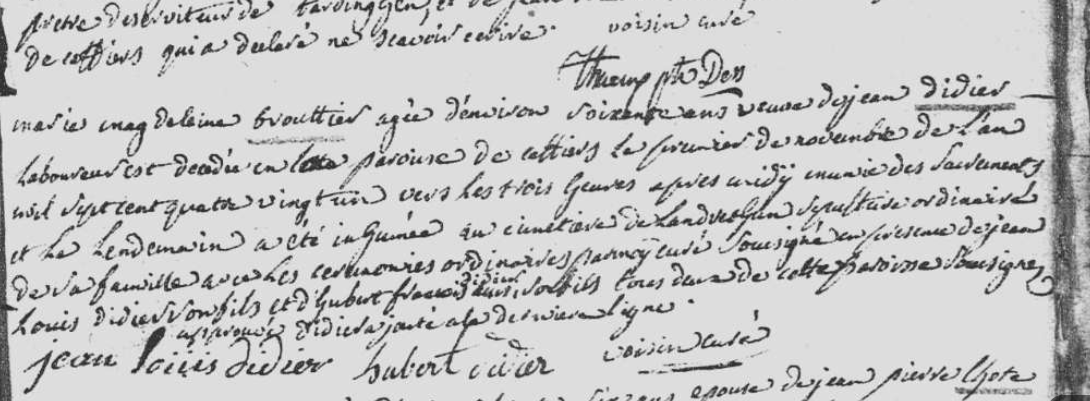 pretre desserviteur de hardinggen, et de jean
de caffiers qui a declaré ne scavoir ecrire. voisin curé
marie magdeleine brouttier agée d'environ soixante ans veuve de jean didier
laboureur est decedée en cette paroisse de caffiers le premier de novembre de l'an
mil sept cent quatre vingt un vers les trois heures apres midÿ munie des sacrements
et le lendemain a été inhumée au cimetiere de Landrethun sepulture ordinaire
de sa famille avec les ceremonies ordinaires par moÿ curé soussigné en presence de jean
Louis didier son fils et d'hubert francois didier aussi son fils tous deux de cette paroisse soussignez
approuvé didier ajouté a la derniere ligne.
jean loüis didier hubert didier voisin curé
ans epouse de jean pierre lhote